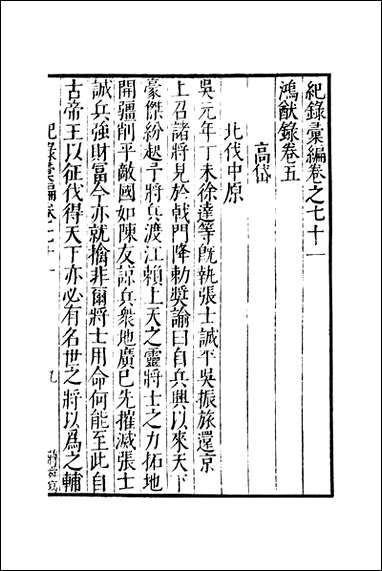 紀錄彙編卷之七十一
鴻猷錄卷五
高岱
北伐中原
吳元年丁未徐達等旣執張士誠平吳振旅還京
上召諸將見於戟門降勅奬諭曰自兵興以來天下
豪傑紛起予將兵渡江賴上天之靈將士之力拓地
開疆削平敵國如陳友諒兵衆地廣已先摧滅張士
誠兵強財富今亦就擒非爾將士用命何能至此自
古帝王以征伐得天下亦必有名世之將以爲之輔
紀錄彙編卷七十一